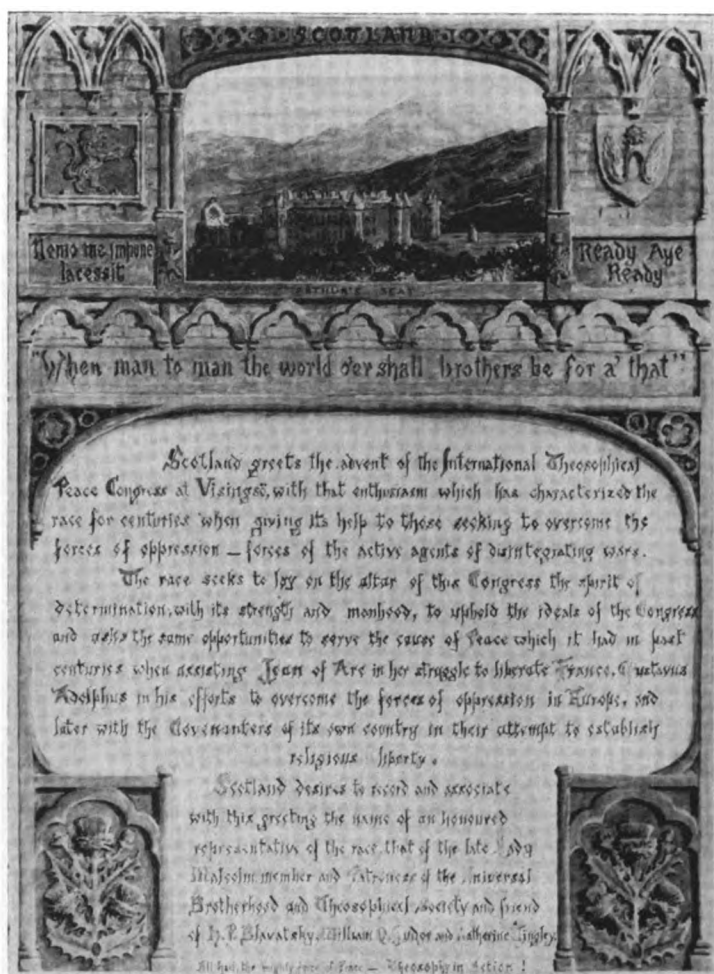 SCOTLAND
Nemo me impune
lacessit
Ready Aye
Ready
ARTHUR'S SEAT
"When man to man the world o'er shall brothers be for a' that"
Scotland greets the advent of the International Theosophical
Peace Congress at Visingsö, with that enthusiasm which has characterized the
race for centuries when giving its help to those seeking to overcome the
forces of oppression — forces of the active agents of disintegrating wars.
The race seeks to lay on the altar of this Congress the spirit of
determination, with its strength and manhood, to uphold the ideals of the Congress
and asks the same opportunities to serve the cause of Peace which it had in past
centuries when assisting Jean of Arc in her struggle to liberate France, Gustavus
Adolphus in his efforts to overcome the forces of oppression in Europe, and
later with the Covenanters of its own country in their attempt to establish
religious liberty.
Scotland desires to record and associate
with this greeting the name of an honoured
representative of the race, that of the late Lady
Malcolm, member and Patroness of the Universal
Brotherhood and Theosophical Society and friend
of H. P. Blavatsky, William Q. Judge and Katherine Tingley.
All hail, the mighty force of Peace — Theosophy in Action!